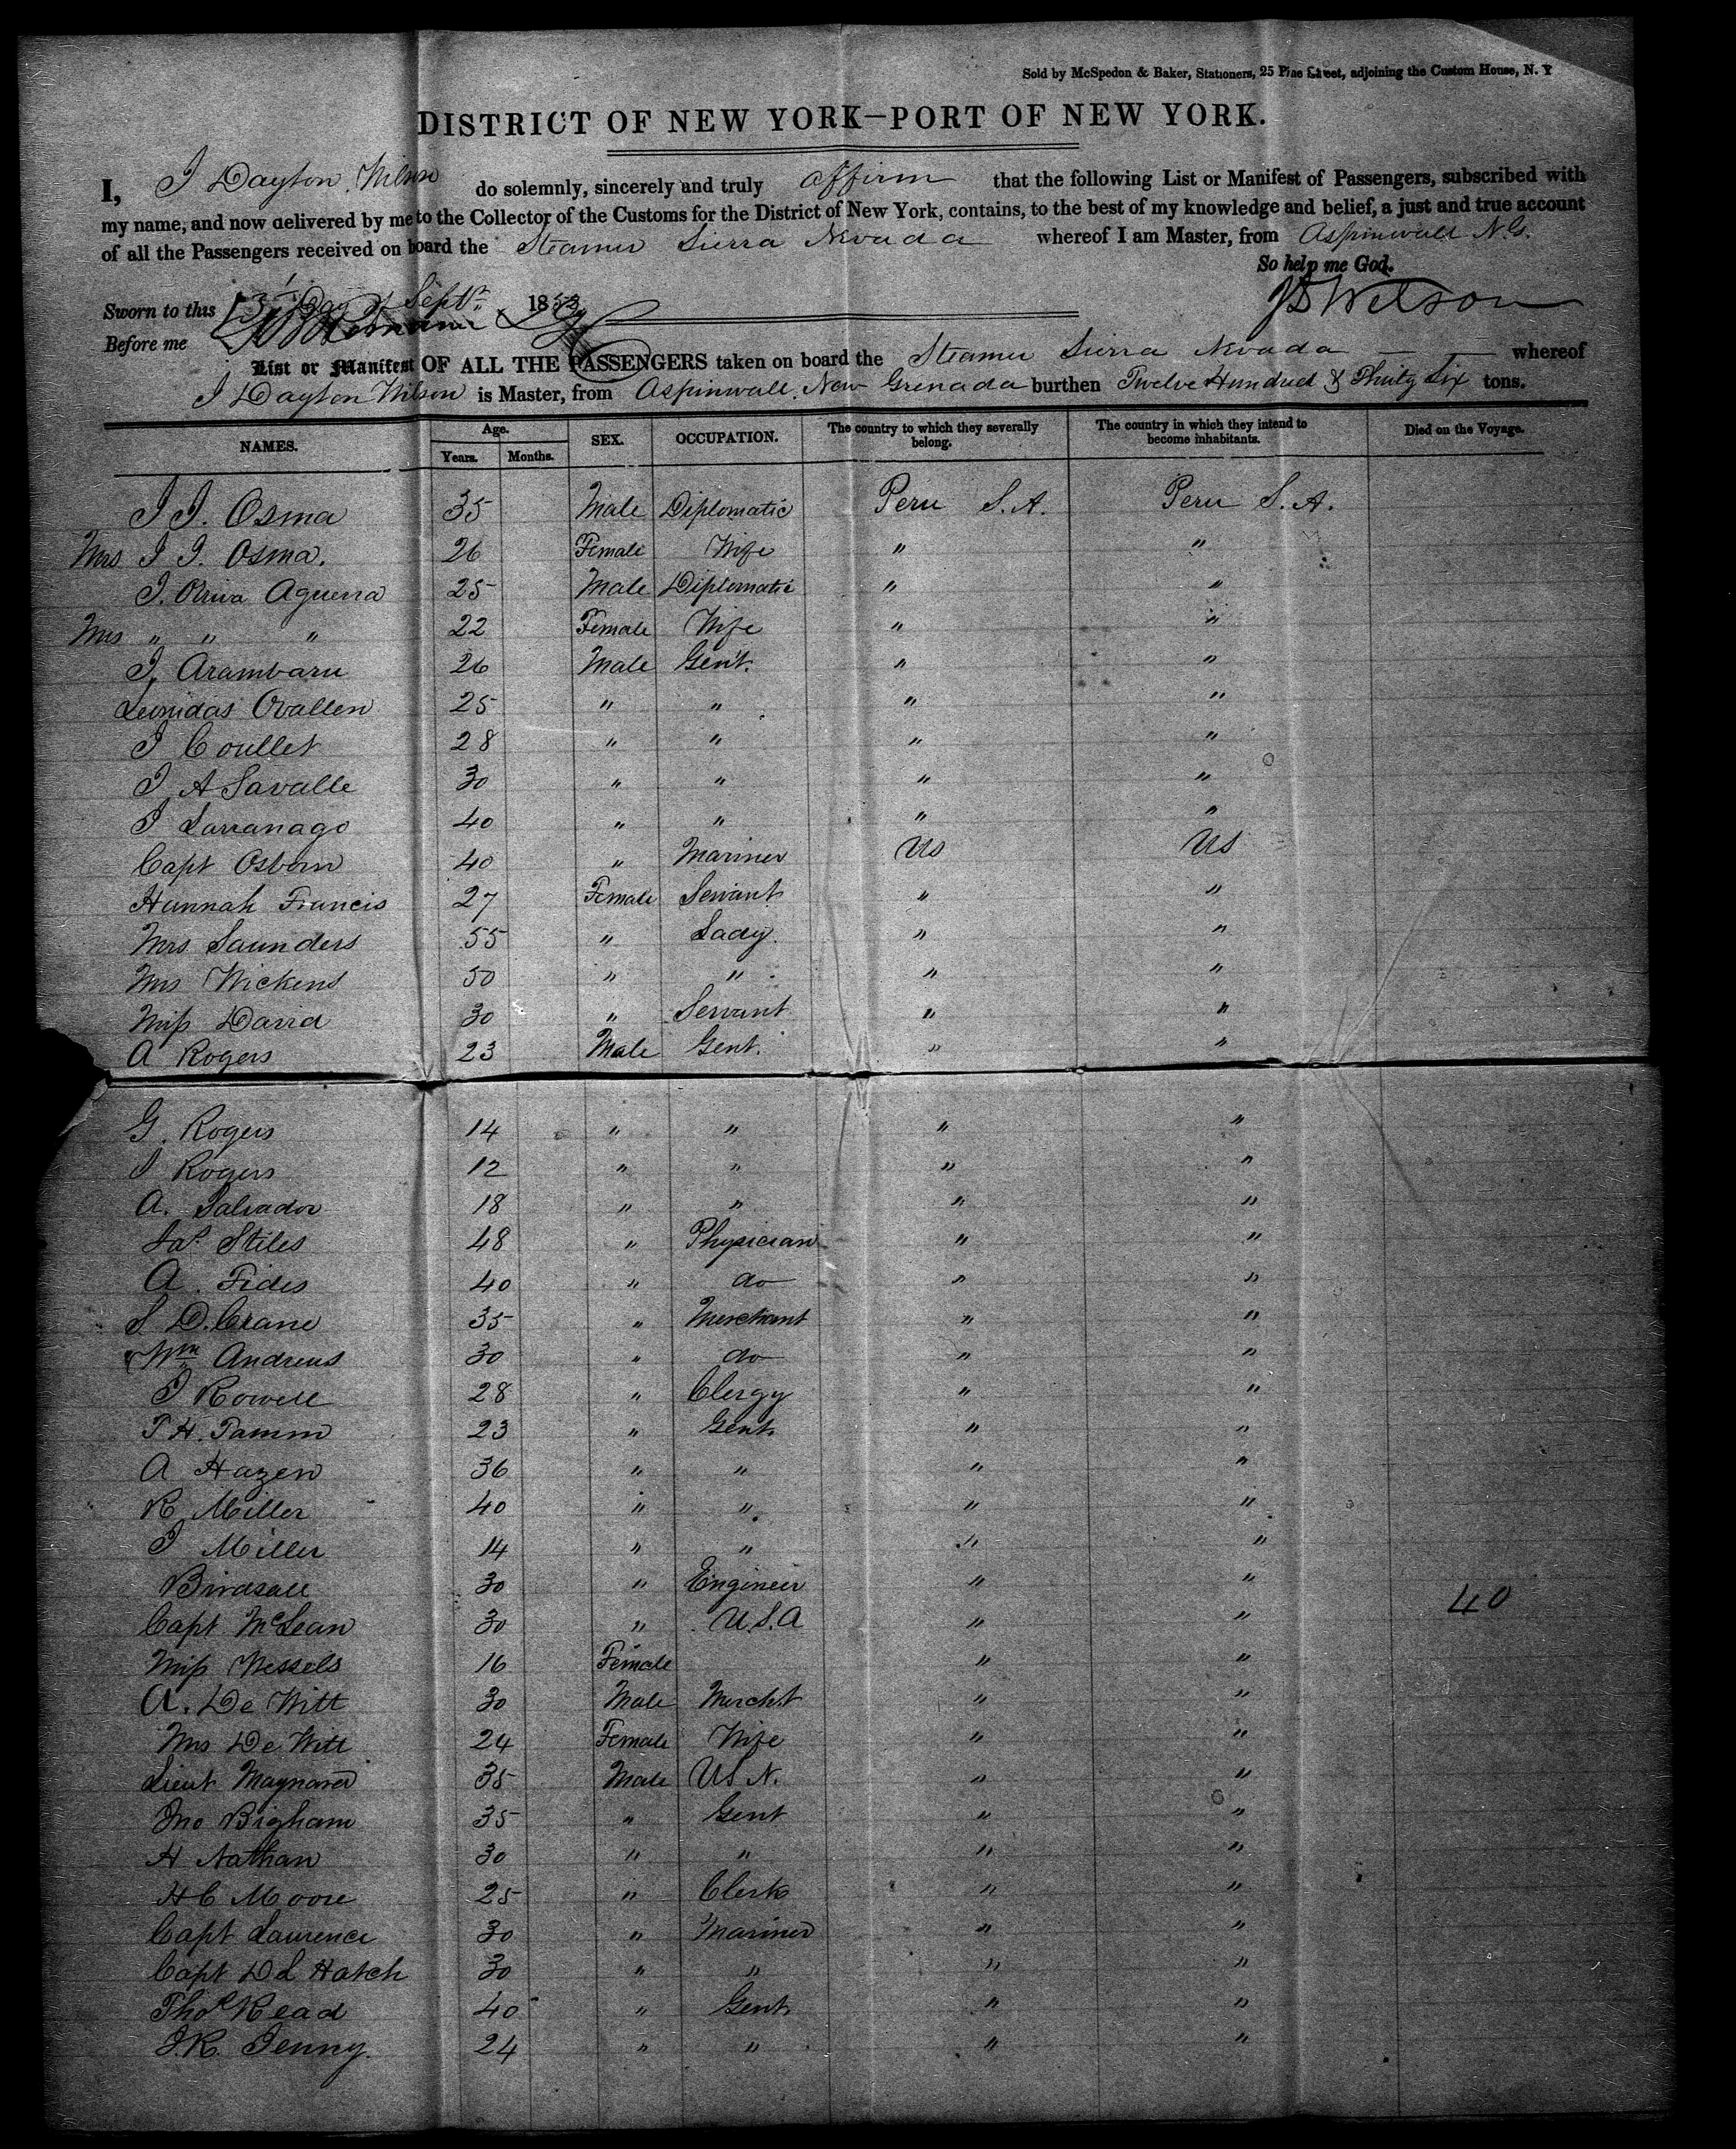 Sold by McSpedon & Baker, Stationers, 25 Pine Street, adjoining the Custom House, N. Y
DISTRICT OF NEW YORK—PORT OF NEW YORK.
I, J Dayton Wilson do solemnly, sincerely and truly affirm that the following List or Manifest of Passengers, subscribed with
my name, and now delivered by me to the Collector of the Customs for the District of New York, contains, to the best of my knowledge and belief, a just and true account
of all the Passengers received on board the Steamer Sierra Nevada whereof I am Master, from Aspinwall N.G.
So help me God.
Sworn to this 13 Day of Sept 1853 JD Wilson
Before me
List or Manifest OF ALL THE PASSENGERS taken on board the Steamer Sierra Nevada whereof
J Dayton Wilson is Master, from Aspinwall, New Grenada burthen Twelve Hundred & Thirty Six tons.
NAMES. Age. Years. Months. SEX. OCCUPATION. The country to which they severally belong. The country in which they intend to become inhabitants. Died on the Voyage.
J J. Osma 35 Male Diplomatic Peru S.A. Peru S.A.
Mrs J J. Osma. 26 Female Wife " "
J. Oliva Aguerra 25 Male Diplomatic " "
Mrs " " " 22 Female Wife " "
J. Arambaru 26 Male Gent. " "
Leonidas Ovallen 25 " " " "
J Coullet 28 " " " "
J A Savalle 30 " " " "
J Larranago 40 " " " "
Capt Osborn 40 " Mariner US US
Hannah Francis 27 Female Servant " "
Mrs Saunders 55 " Lady. " "
Mrs Wickens 50 " " " "
Miss David 30 " Servant " "
A Rogers 23 Male Gent. " "
G. Rogers 14 " " " "
J Rogers 12 " " " "
A. Salvador 18 " " " "
Jas Stiles 48 " Physician " "
A. Fides 40 " do " "
S D. Crane 35 " Merchant " "
Wm Andrews 30 " do " "
J Rowell 28 " Clergy " "
T H. Tamm 23 " Gent. " "
A Hazen 36 " " " "
R Miller 40 " " " "
J Miller 14 " " " "
Birdsall 30 " Engineer " " 40
Capt McLean 30 " U.S.A " "
Miss Wessels 16 Female " "
A. De Witt 30 Male Mercht " "
Mrs De Witt 24 Female Wife " "
Lieut Maynard 35 Male US N. " "
Jno Bigham 35 " Gent " "
H Nathan 30 " " " "
H C Moore 25 " Clerk " "
Capt Laurence 30 " Mariner " "
Capt D L Hatch 30 " " " "
Thos Read 40 " Gent. " "
J.R. Jenny. 24 " " " "